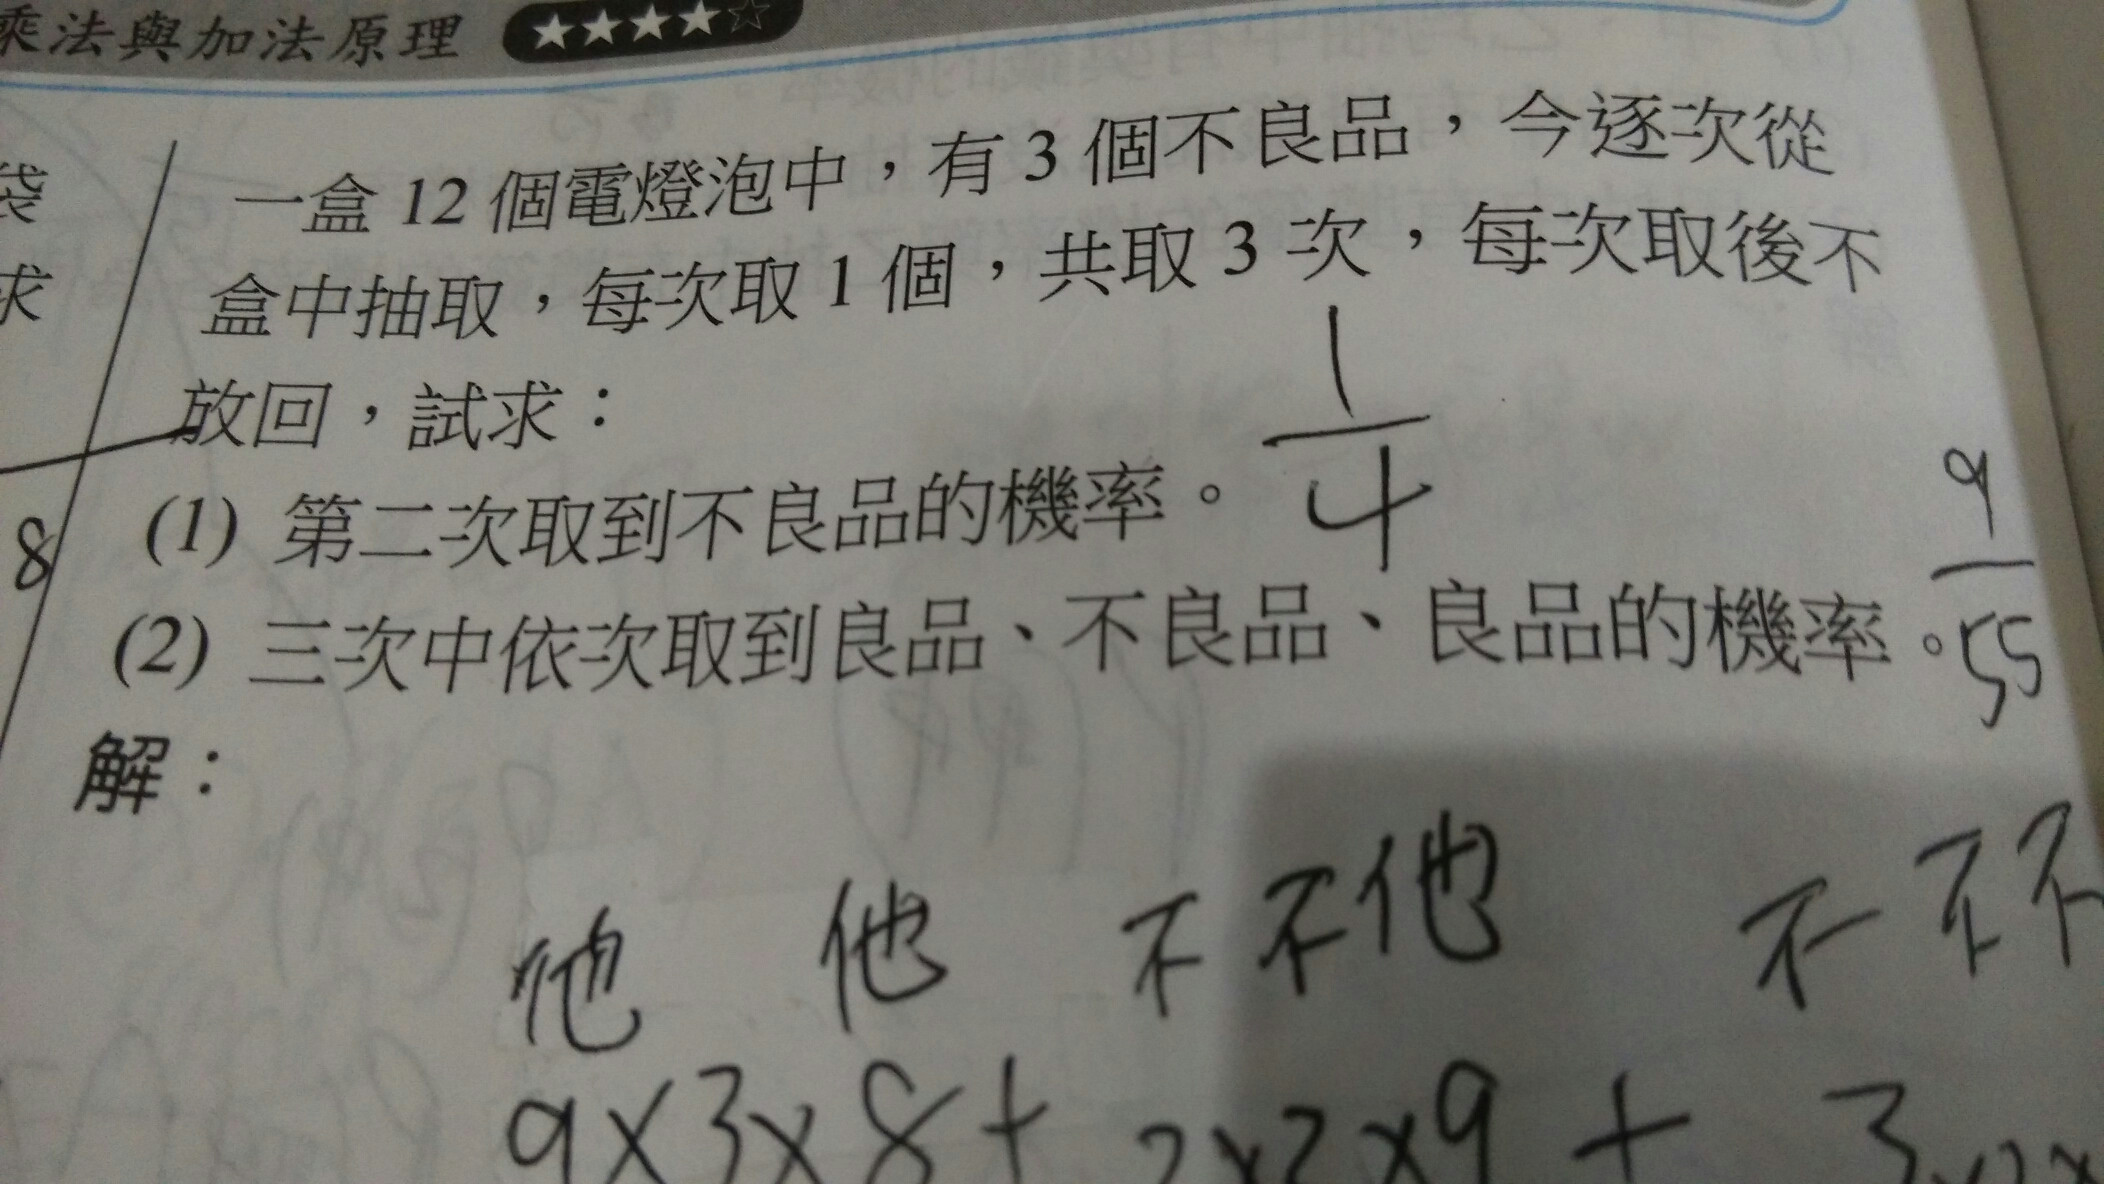 乘法與加法原理 ★★★★☆
袋
求
一盒 12 個電燈泡中，有 3 個不良品，今逐次從
盒中抽取，每次取 1 個，共取 3 次，每次取後不
放回，試求：
(1) 第二次取到不良品的機率。 1/4
8
(2) 三次中依次取到良品、不良品、良品的機率。 9/55
解：
他 他 不 不 他 不 不 不
9×3×8+ ×2×9 + 3